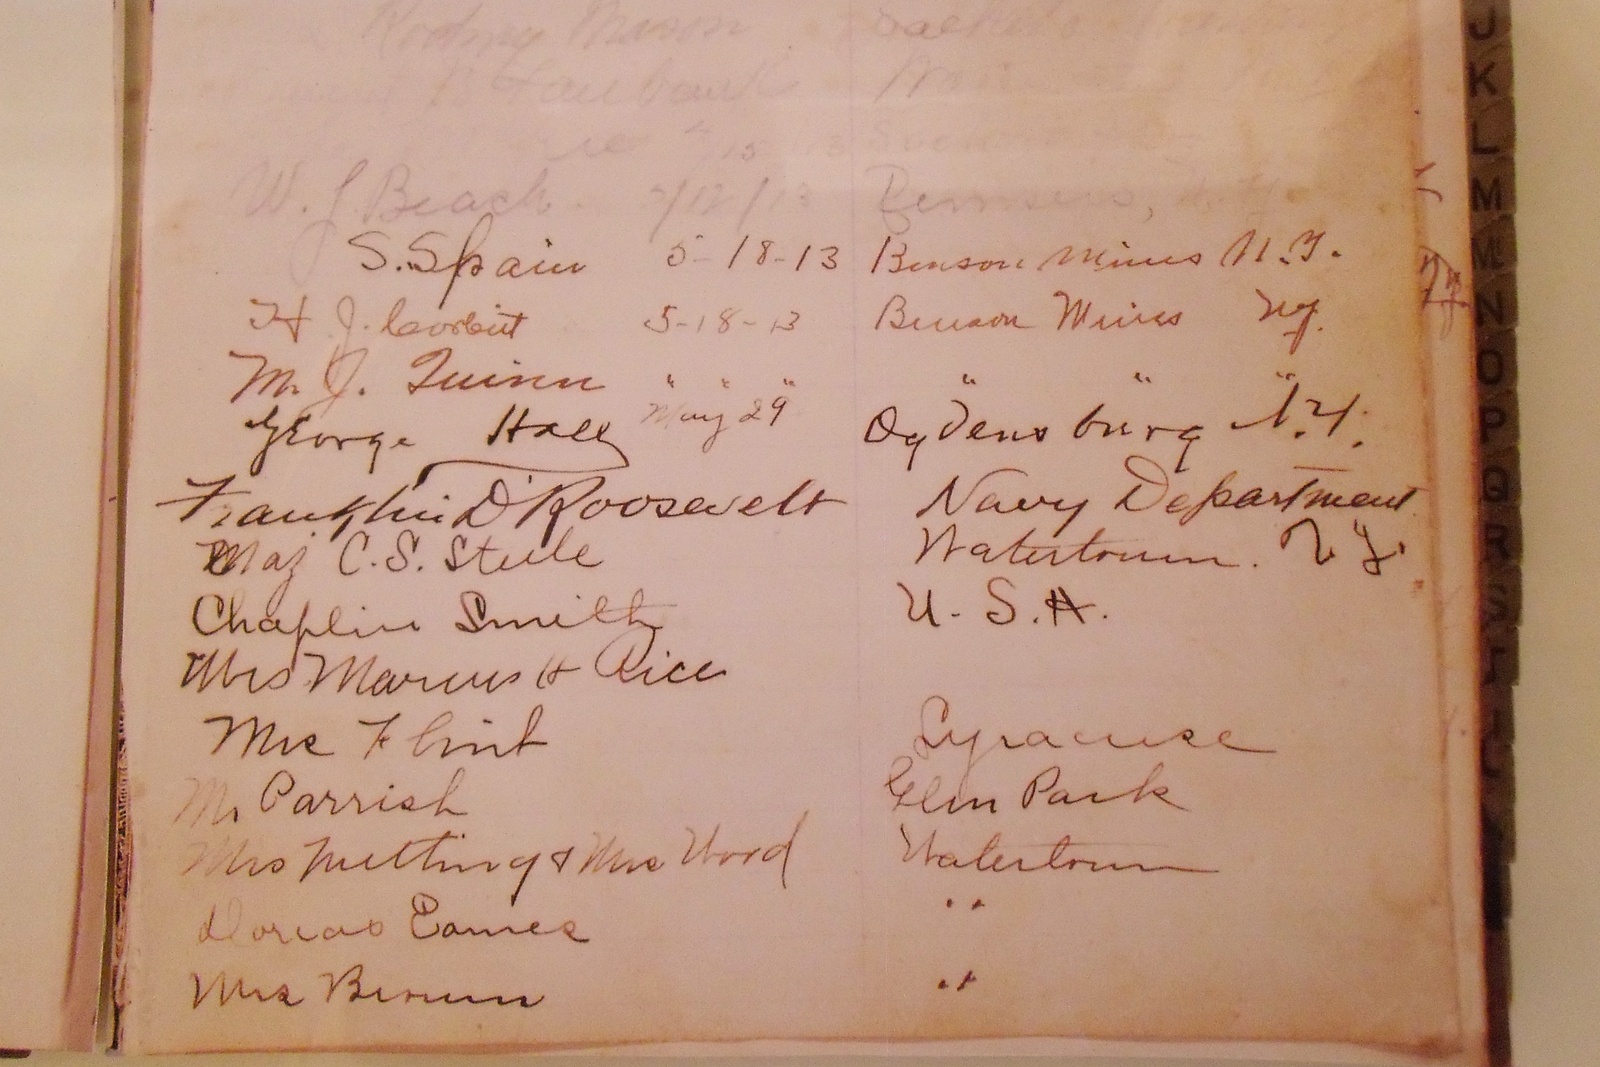 Rodney Mason
B Fairbank
W. J. Beach 2/12/13 Remsen, N. Y.
S. Spain 5-18-13 Benson Mines N.Y.
H J. Corbut 5-18-13 Benson Mines NY.
M. J. Quinn " " " " " "
George Hall May 29 Ogdensburg N.Y.
Franklin D Roosevelt Navy Department
Maj C. S. Steele Watertown. N Y.
Chaplin Smith U. S. A.
Mrs Marcus H Rice
Mrs Flint Syracuse
Mr Parrish Glen Park
Mrs Nutting & Mrs Wood Watertown
Dorcas Eames "
Mrs Brown "
J
K
L
M
M
N
O
P
Q
R
S
T